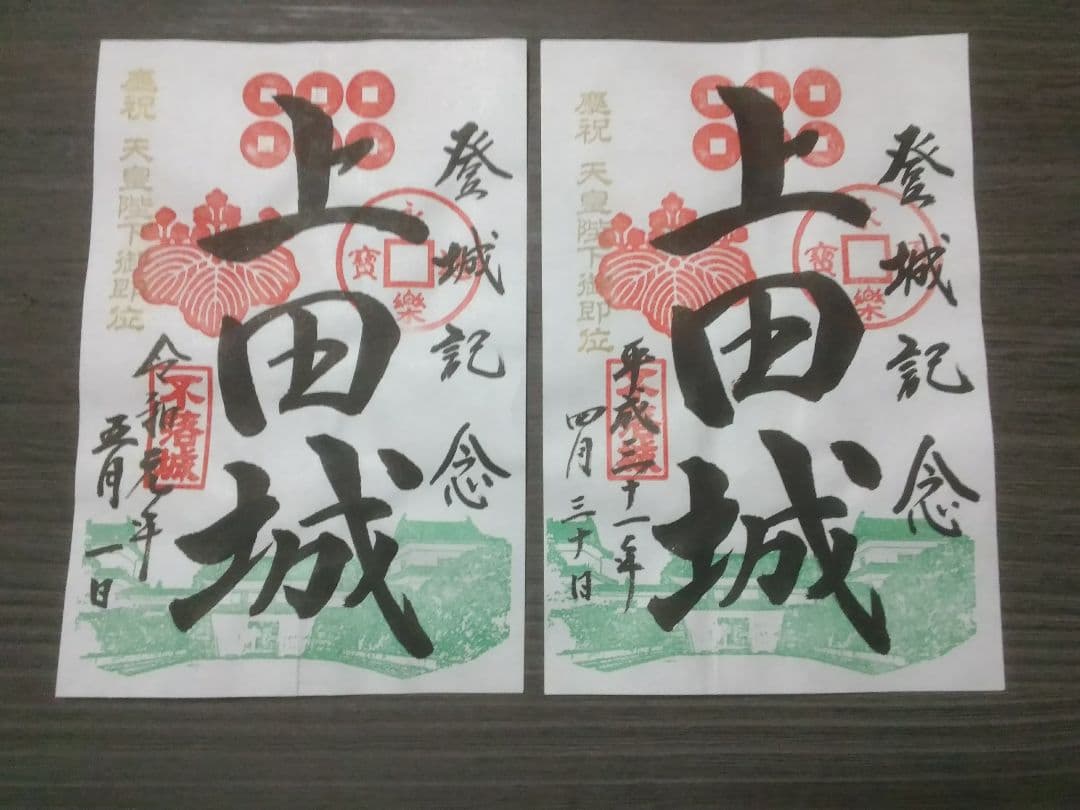 登城記念
上田城
永樂通寳
不落城
慶祝 天皇陛下御即位
令和元年
五月一日
登城記念
上田城
永樂通寳
不落城
慶祝 天皇陛下御即位
平成三十一年
四月三十日